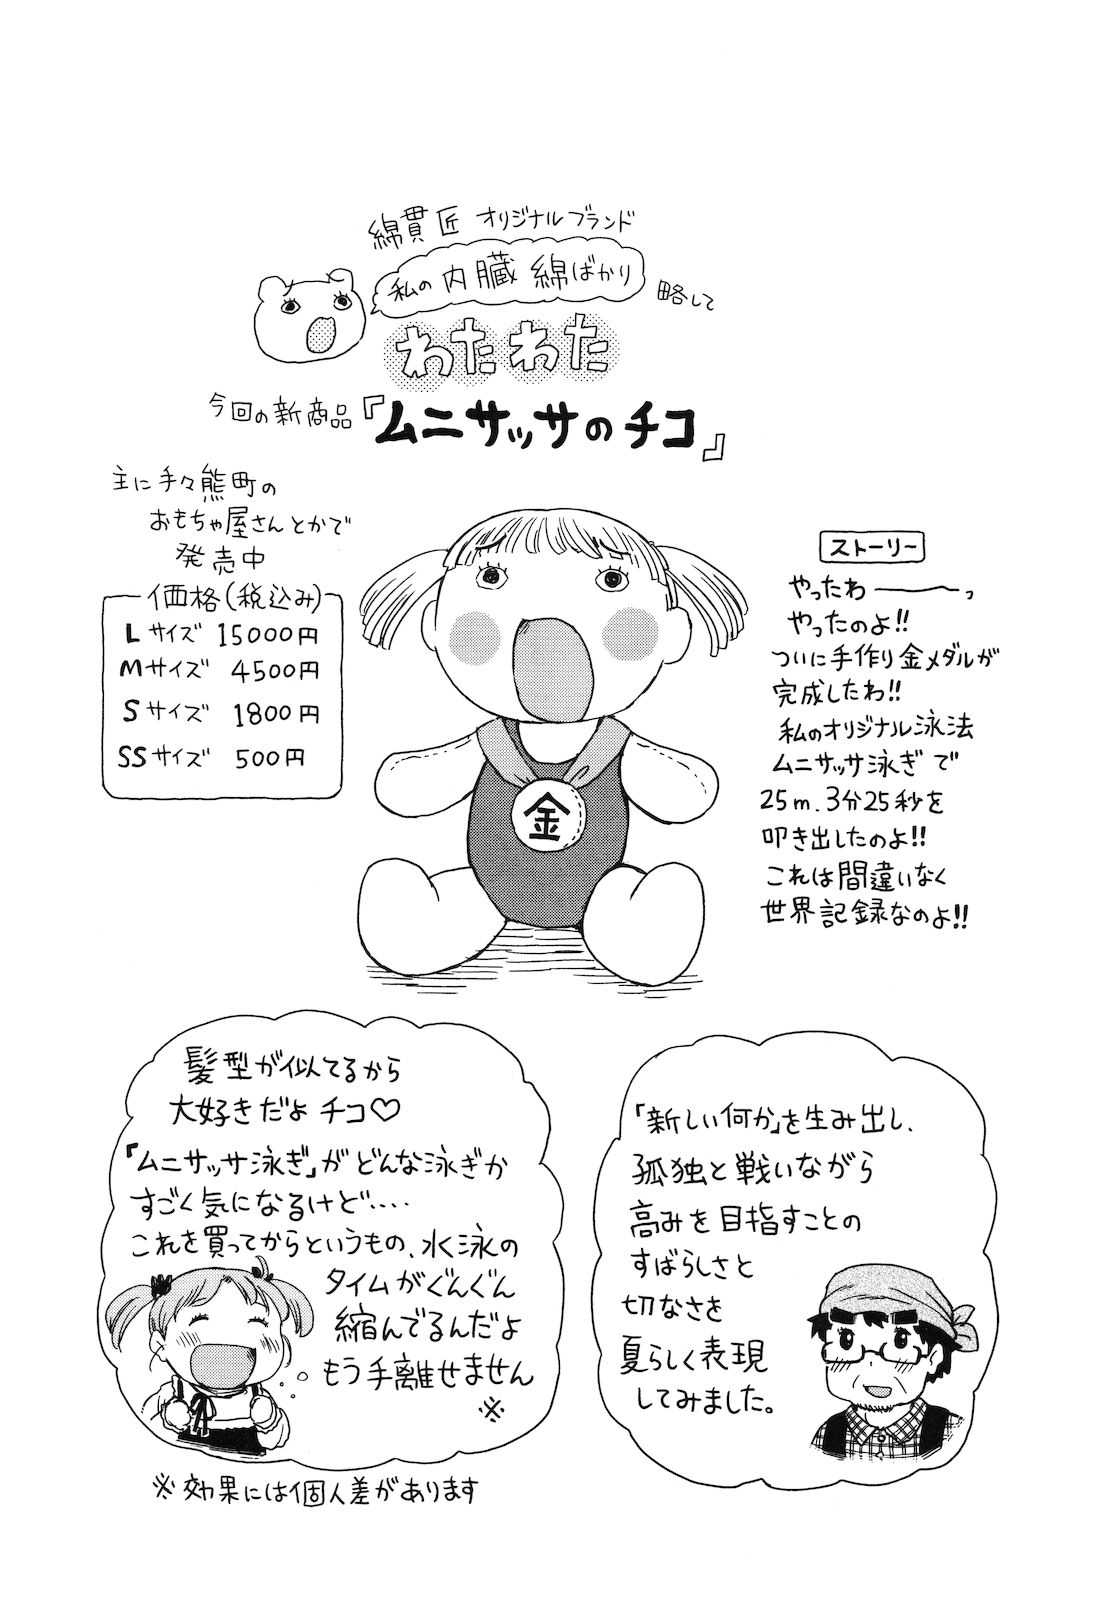 綿貫匠 オリジナルブランド
私の内臓綿ばかり
略して
わたわた
今回の新商品『ムニサッサのチコ』
主に手々熊町の
おもちゃ屋さんとかで
発売中
価格(税込み)
Lサイズ 15000円
Mサイズ 4500円
Sサイズ 1800円
SSサイズ 500円
ストーリー
やったわ――っ
やったのよ!!
ついに手作り金メダルが
完成したわ!!
私のオリジナル泳法
ムニサッサ泳ぎで
25m.3分25秒を
叩き出したのよ!!
これは間違いなく
世界記録なのよ!!
金
髪型が似てるから
大好きだよ チコ♡
『ムニサッサ泳ぎ』がどんな泳ぎか
すごく気になるけど‥‥
これを買ってからというもの、水泳の
タイムがぐんぐん
縮んでるんだよ
もう手離せません
※
※効果には個人差があります
「新しい何か」を生み出し、
孤独と戦いながら
高みを目指すことの
すばらしさと
切なさを
夏らしく表現
してみました。